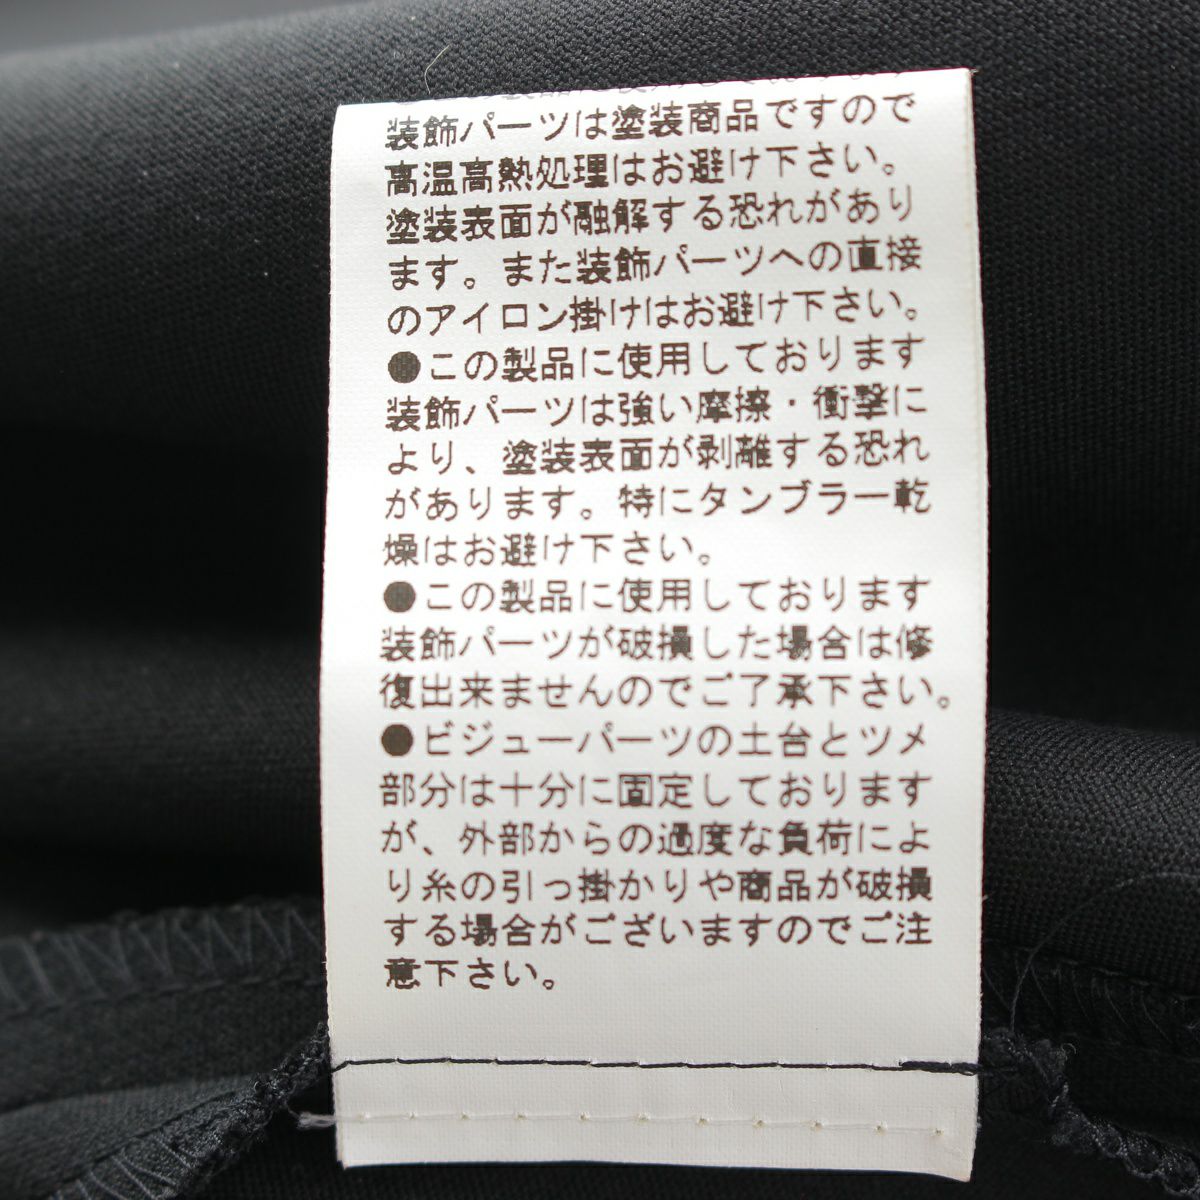 装飾パーツは塗装商品ですので
高温高熱処理はお避け下さい。
塗装表面が融解する恐れがあり
ます。また装飾パーツへの直接
のアイロン掛けはお避け下さい。
●この製品に使用しております
装飾パーツは強い摩擦・衝撃に
より、塗装表面が剥離する恐れ
があります。特にタンブラー乾
燥はお避け下さい。
●この製品に使用しております
装飾パーツが破損した場合は修
復出来ませんのでご了承下さい。
●ビジューパーツの土台とツメ
部分は十分に固定しております
が、外部からの過度な負荷によ
り糸の引っ掛かりや商品が破損
する場合がございますのでご注
意下さい。